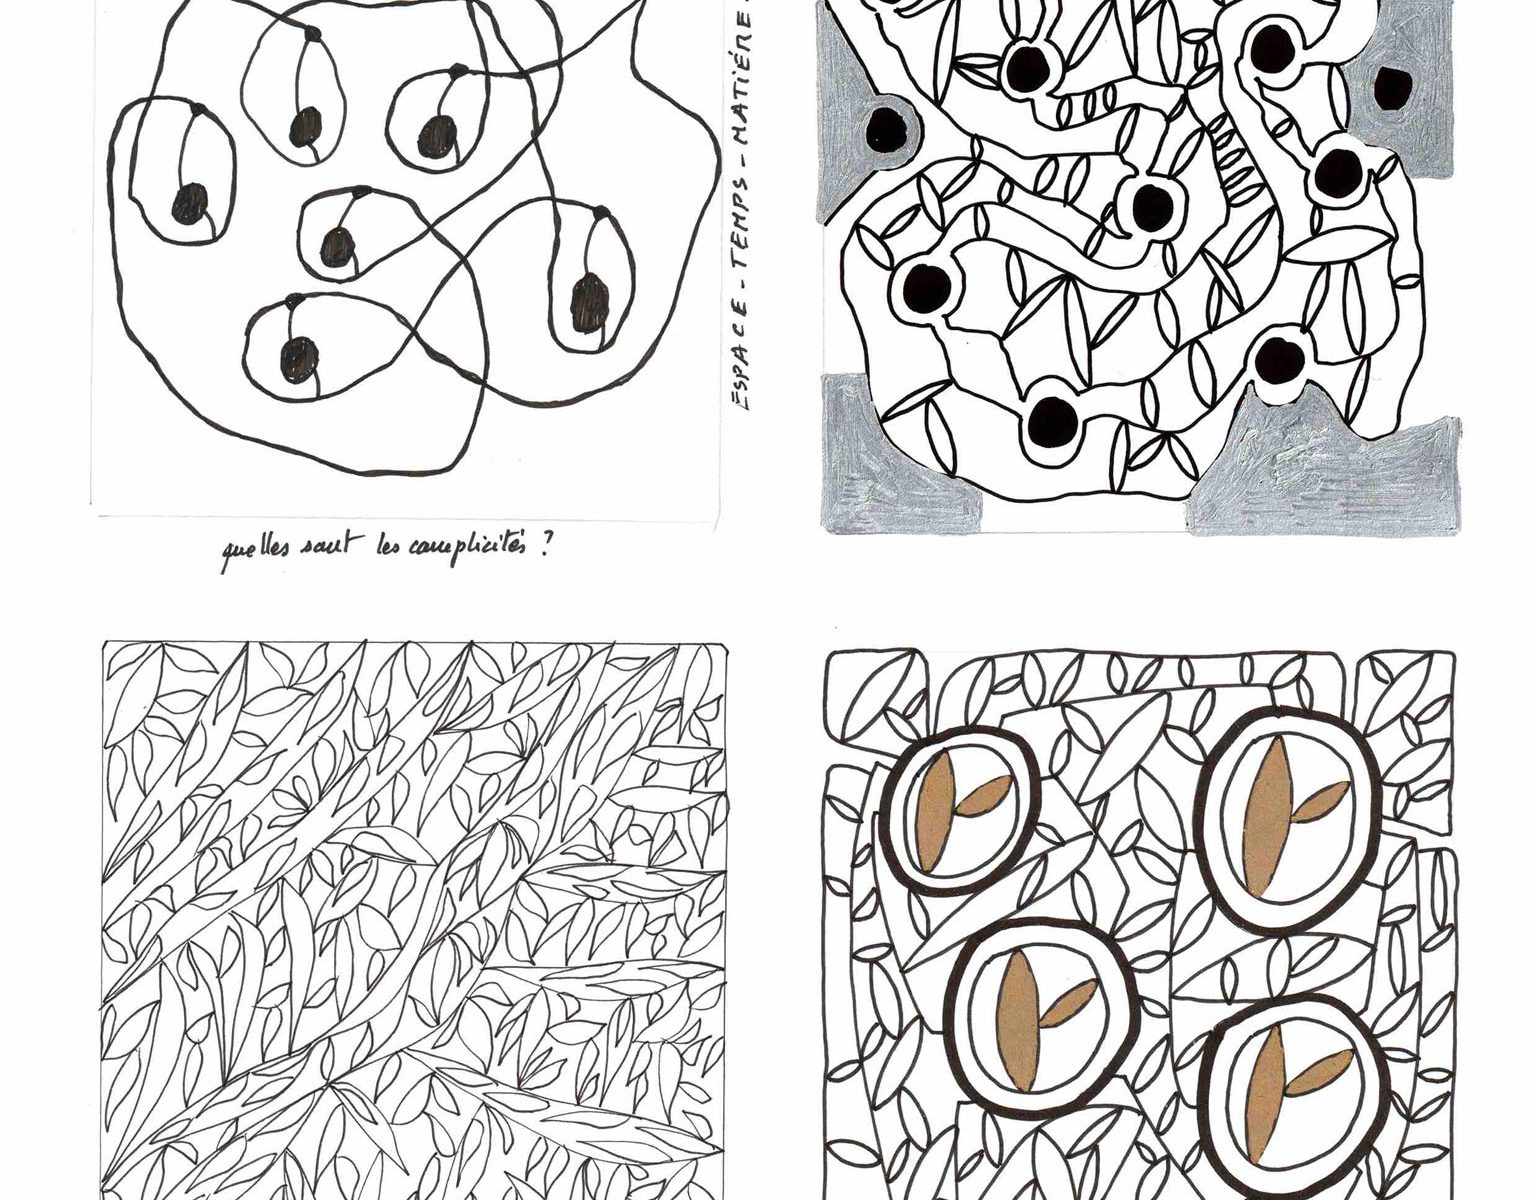 ESPACE - TEMPS - MATIÉRE -
quelles sont les complicités ?